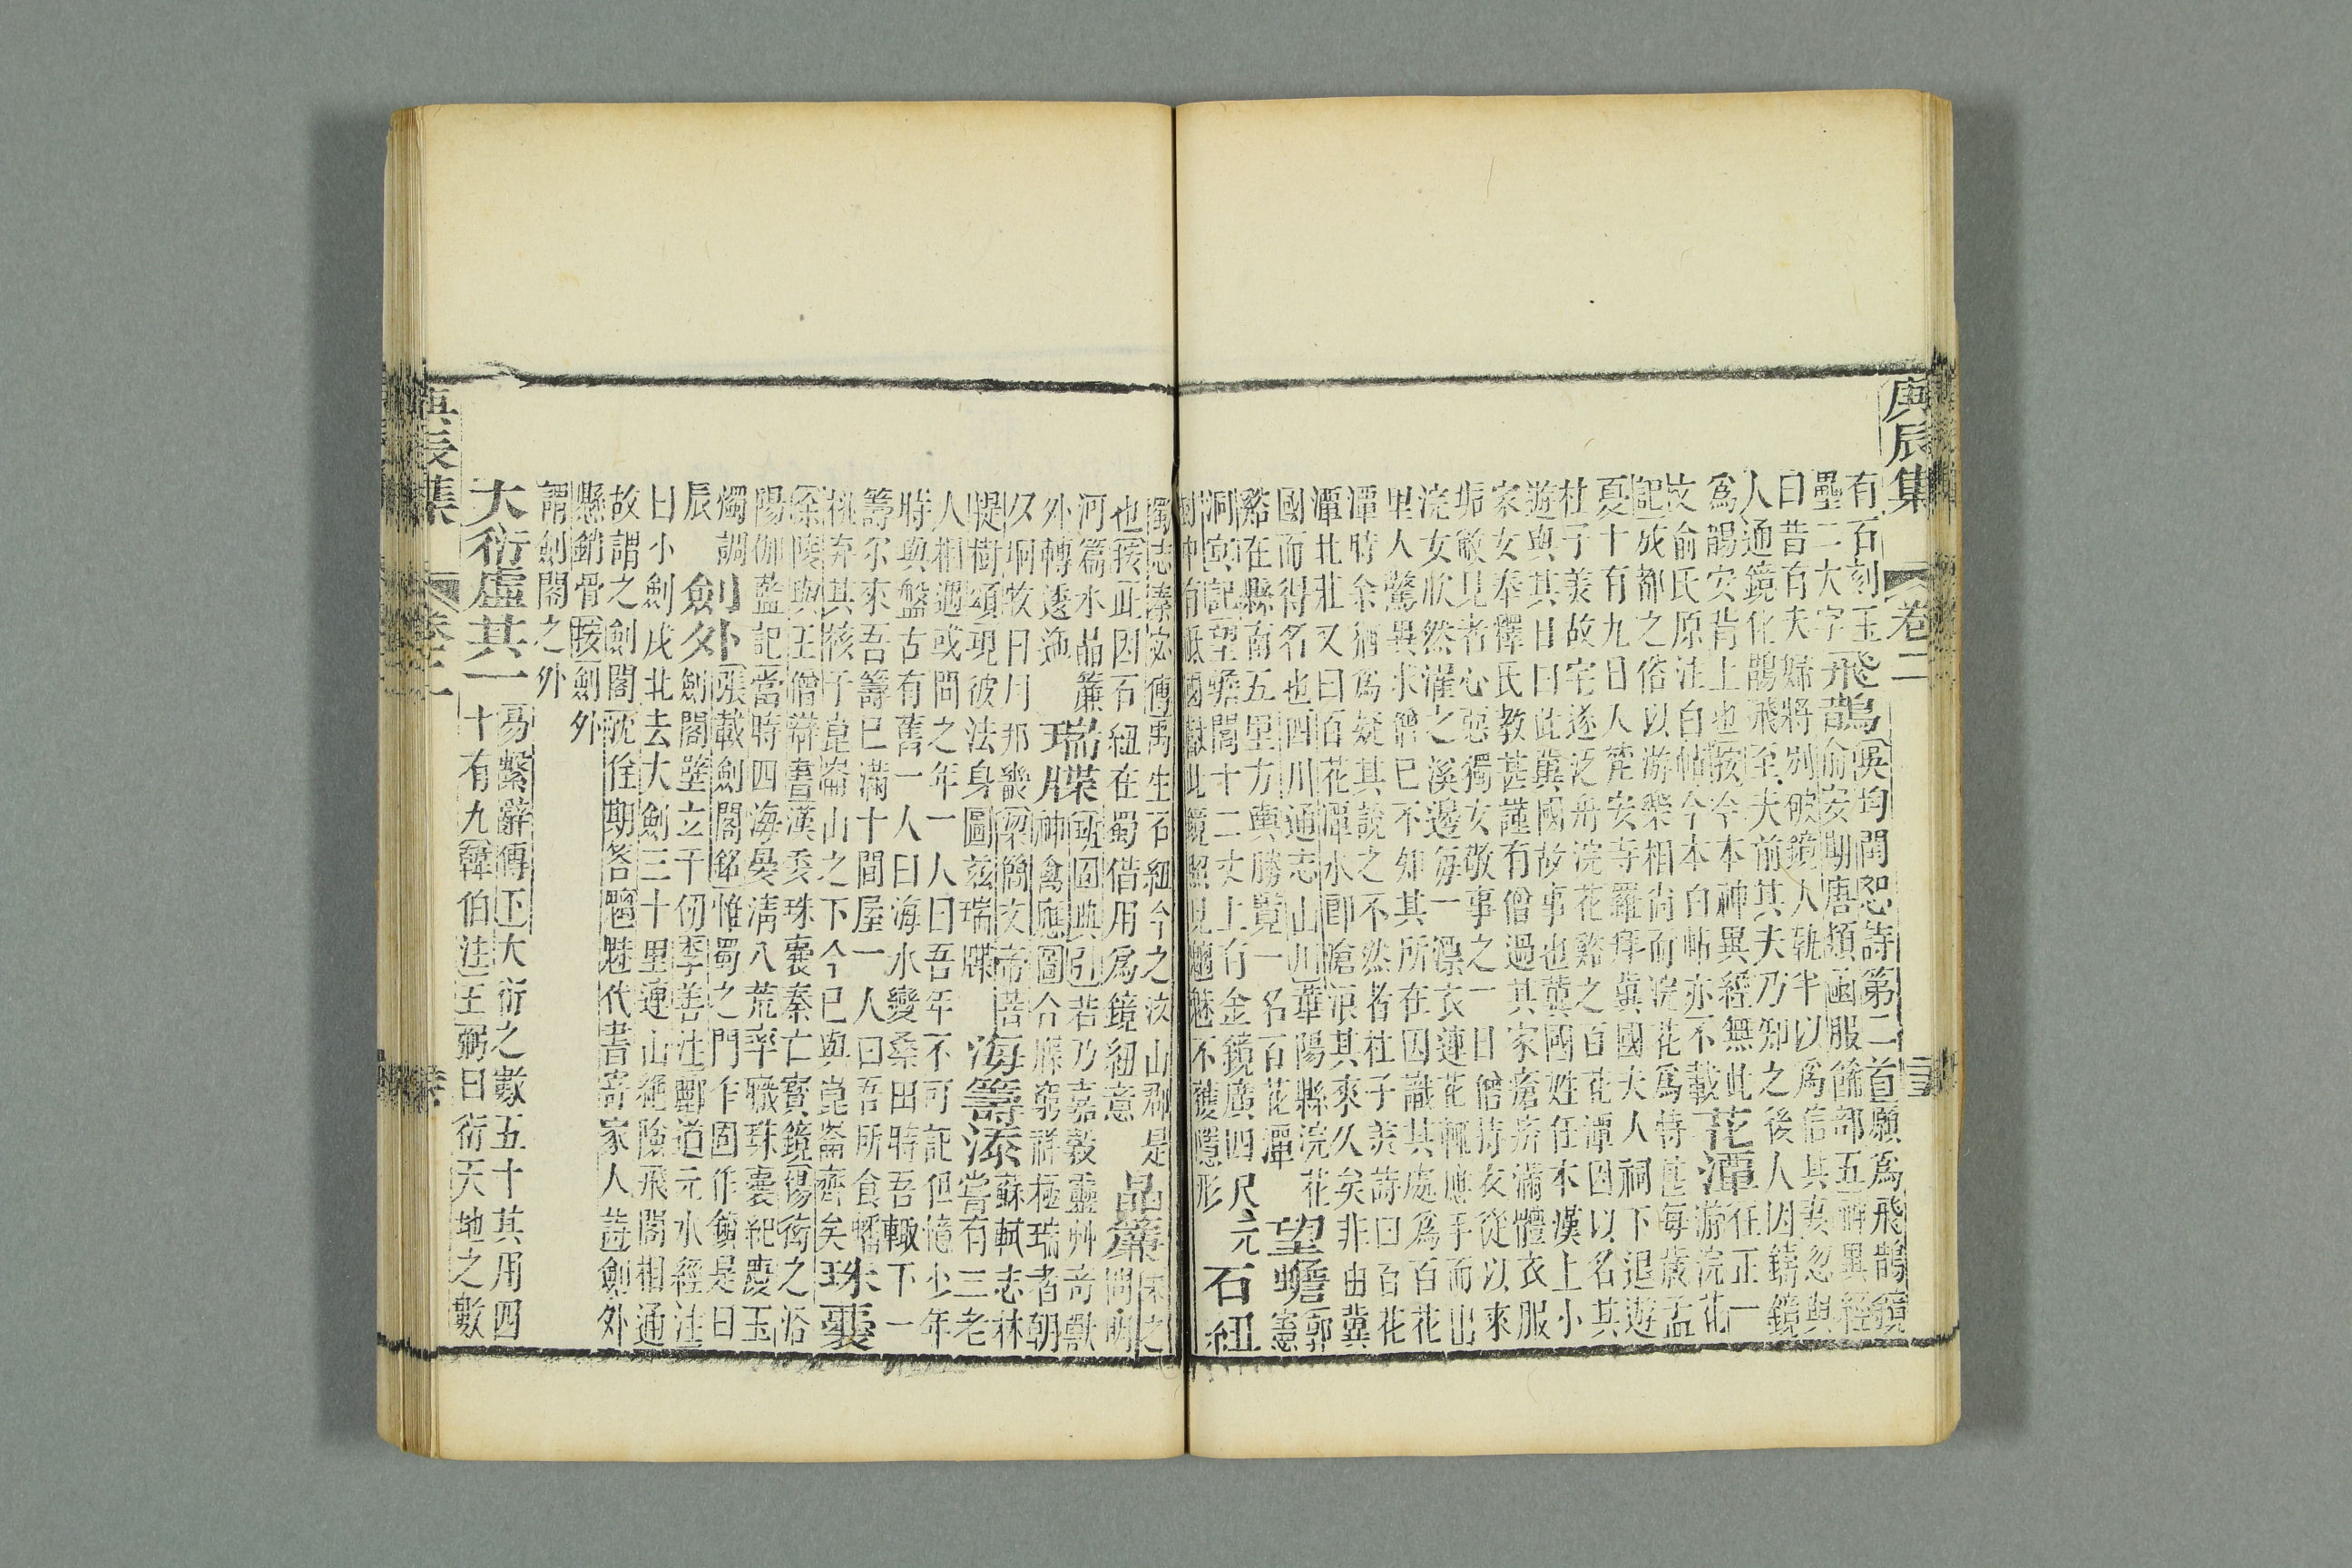 庚辰集 卷二 三
有石刻玉
壘二大字 飛鵲 吳均閨怨詩第二首願為飛鵲鏡
俞安期唐類函服飾部五神異經
曰昔有夫婦將別破鏡人執半以為信其妻忽與
人通鏡化鵲飛至夫前其夫乃知之後人因鑄鏡
為鵲安背上也按今本神異經無此 任正一
花潭 游浣花
攴俞氏原注白帖今本白帖亦不載
記成都之俗以游樂相尚而浣花為特甚每歲孟
夏十有九日人
安寺羅拜冀國夫人祠下退遊
杜子美故宅遂泛舟浣花谿之百花潭因以名其
遊與其日曰此冀國故事也冀國姓任本漢上小
家女奉釋氏教甚謹有僧過其家瘡疥滿體衣服
垢敝見者心惡獨女敬事之一日僧持衣從以來
浣女欣然濯之溪邊每一漂衣連花輒應手而出
里人驚異求僧已不知其所在因識其處為百花
潭時余猶為疑其說之不然者杜子美詩曰百花
潭北莊又曰百花潭水即滄浪其來久矣非由冀
國而得名也四川通志山川華陽縣浣花
谿在縣南五里方輿勝覽一名百花潭 望蟾 郭憲
洞冥記望蟾閣十二丈上有金鏡廣四尺元
封中有祇國獻此鏡照見魑魅不獲隱形 石紐
蜀志秦宓傳禹生石紐今之汶山郡是
也按此因石紐在蜀借用為鏡紐意 晶簾 宋之問明
河篇水晶簾
外轉逶迤 瑞牒 班固典引若乃嘉穀靈艸奇獸
神禽應圖合牒窮祥極瑞者朝
夕坰牧日月邦畿梁簡文帝菩
提樹頌現彼法身圖茲瑞牒 海籌添 蘇軾志林
嘗有三老
人相遇或問之年一人曰吾年不可記但憶少年
時與盤古有舊一人曰海水變桑田時吾輒下一
籌尔來吾籌已滿十間屋一人曰吾所食蟠桃
棄其核于崑崙山之下今已與崑崙齊矣 珠囊
徐陵與王僧辯書漢委珠囊秦亡寶鏡楊衒之洛
陽伽藍記當時四海晏清八荒率職珠囊紀慶玉
燭調
辰 劍外 張載劍閣銘惟蜀之門作固作鎮是曰
劍閣壁立千仞李善注酈道元水經注
曰小劍戍北去大劍三十里連山絕險飛閣相通
故謂之劍閣沈佺期答魑魅代書寄家人詩劍外
懸銷骨按劍外
謂劍閣之外
大衍虛其一 易繫辭傳正大衍之數五十其用四
十有九韓伯注王弼曰衍天地之數
庚辰集 卷二